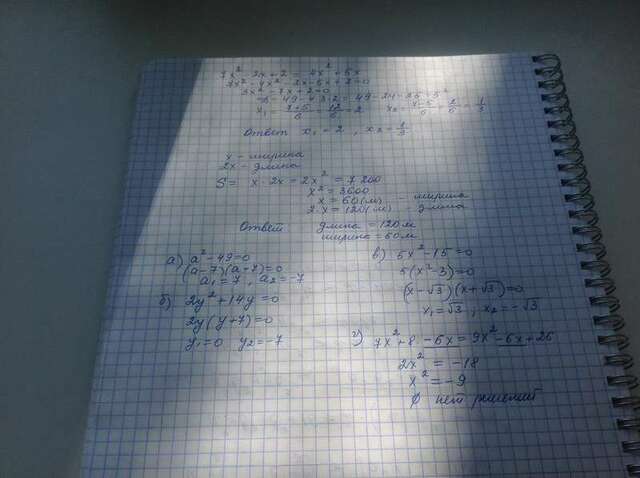 7x² - 2x + 2 = 4x² + 5x
7x² - 4x² - 2x - 5x + 2 = 0
3x² - 7x + 2 = 0
D = 49 - 4·3·2 = 49 - 24 = 25 = 5²
x₁ = (7+5)/6 = 12/6 = 2 x₂ = (7-5)/6 = 2/6 = 1/3
Ответ x₁ = 2 , x₂ = 1/3
x - ширина
2x - длина
S = x · 2x = 2x² = 7200
x² = 3600
x = 60 (м) - ширина
2·x = 120 (м) - длина
Ответ длина = 120 м
ширина = 60 м
а) a² - 49 = 0
(a - 7)(a + 7) = 0
a₁ = 7 , a₂ = -7
б) 2y² + 14y = 0
2y (y + 7) = 0
y₁ = 0 y₂ = -7
в) 5x² - 15 = 0
5(x² - 3) = 0
(x - √3)(x + √3) = 0
x₁ = √3 ; x₂ = -√3
г) 7x² + 8 - 6x = 9x² - 6x + 26
2x² = -18
x² = -9
∅ нет решений